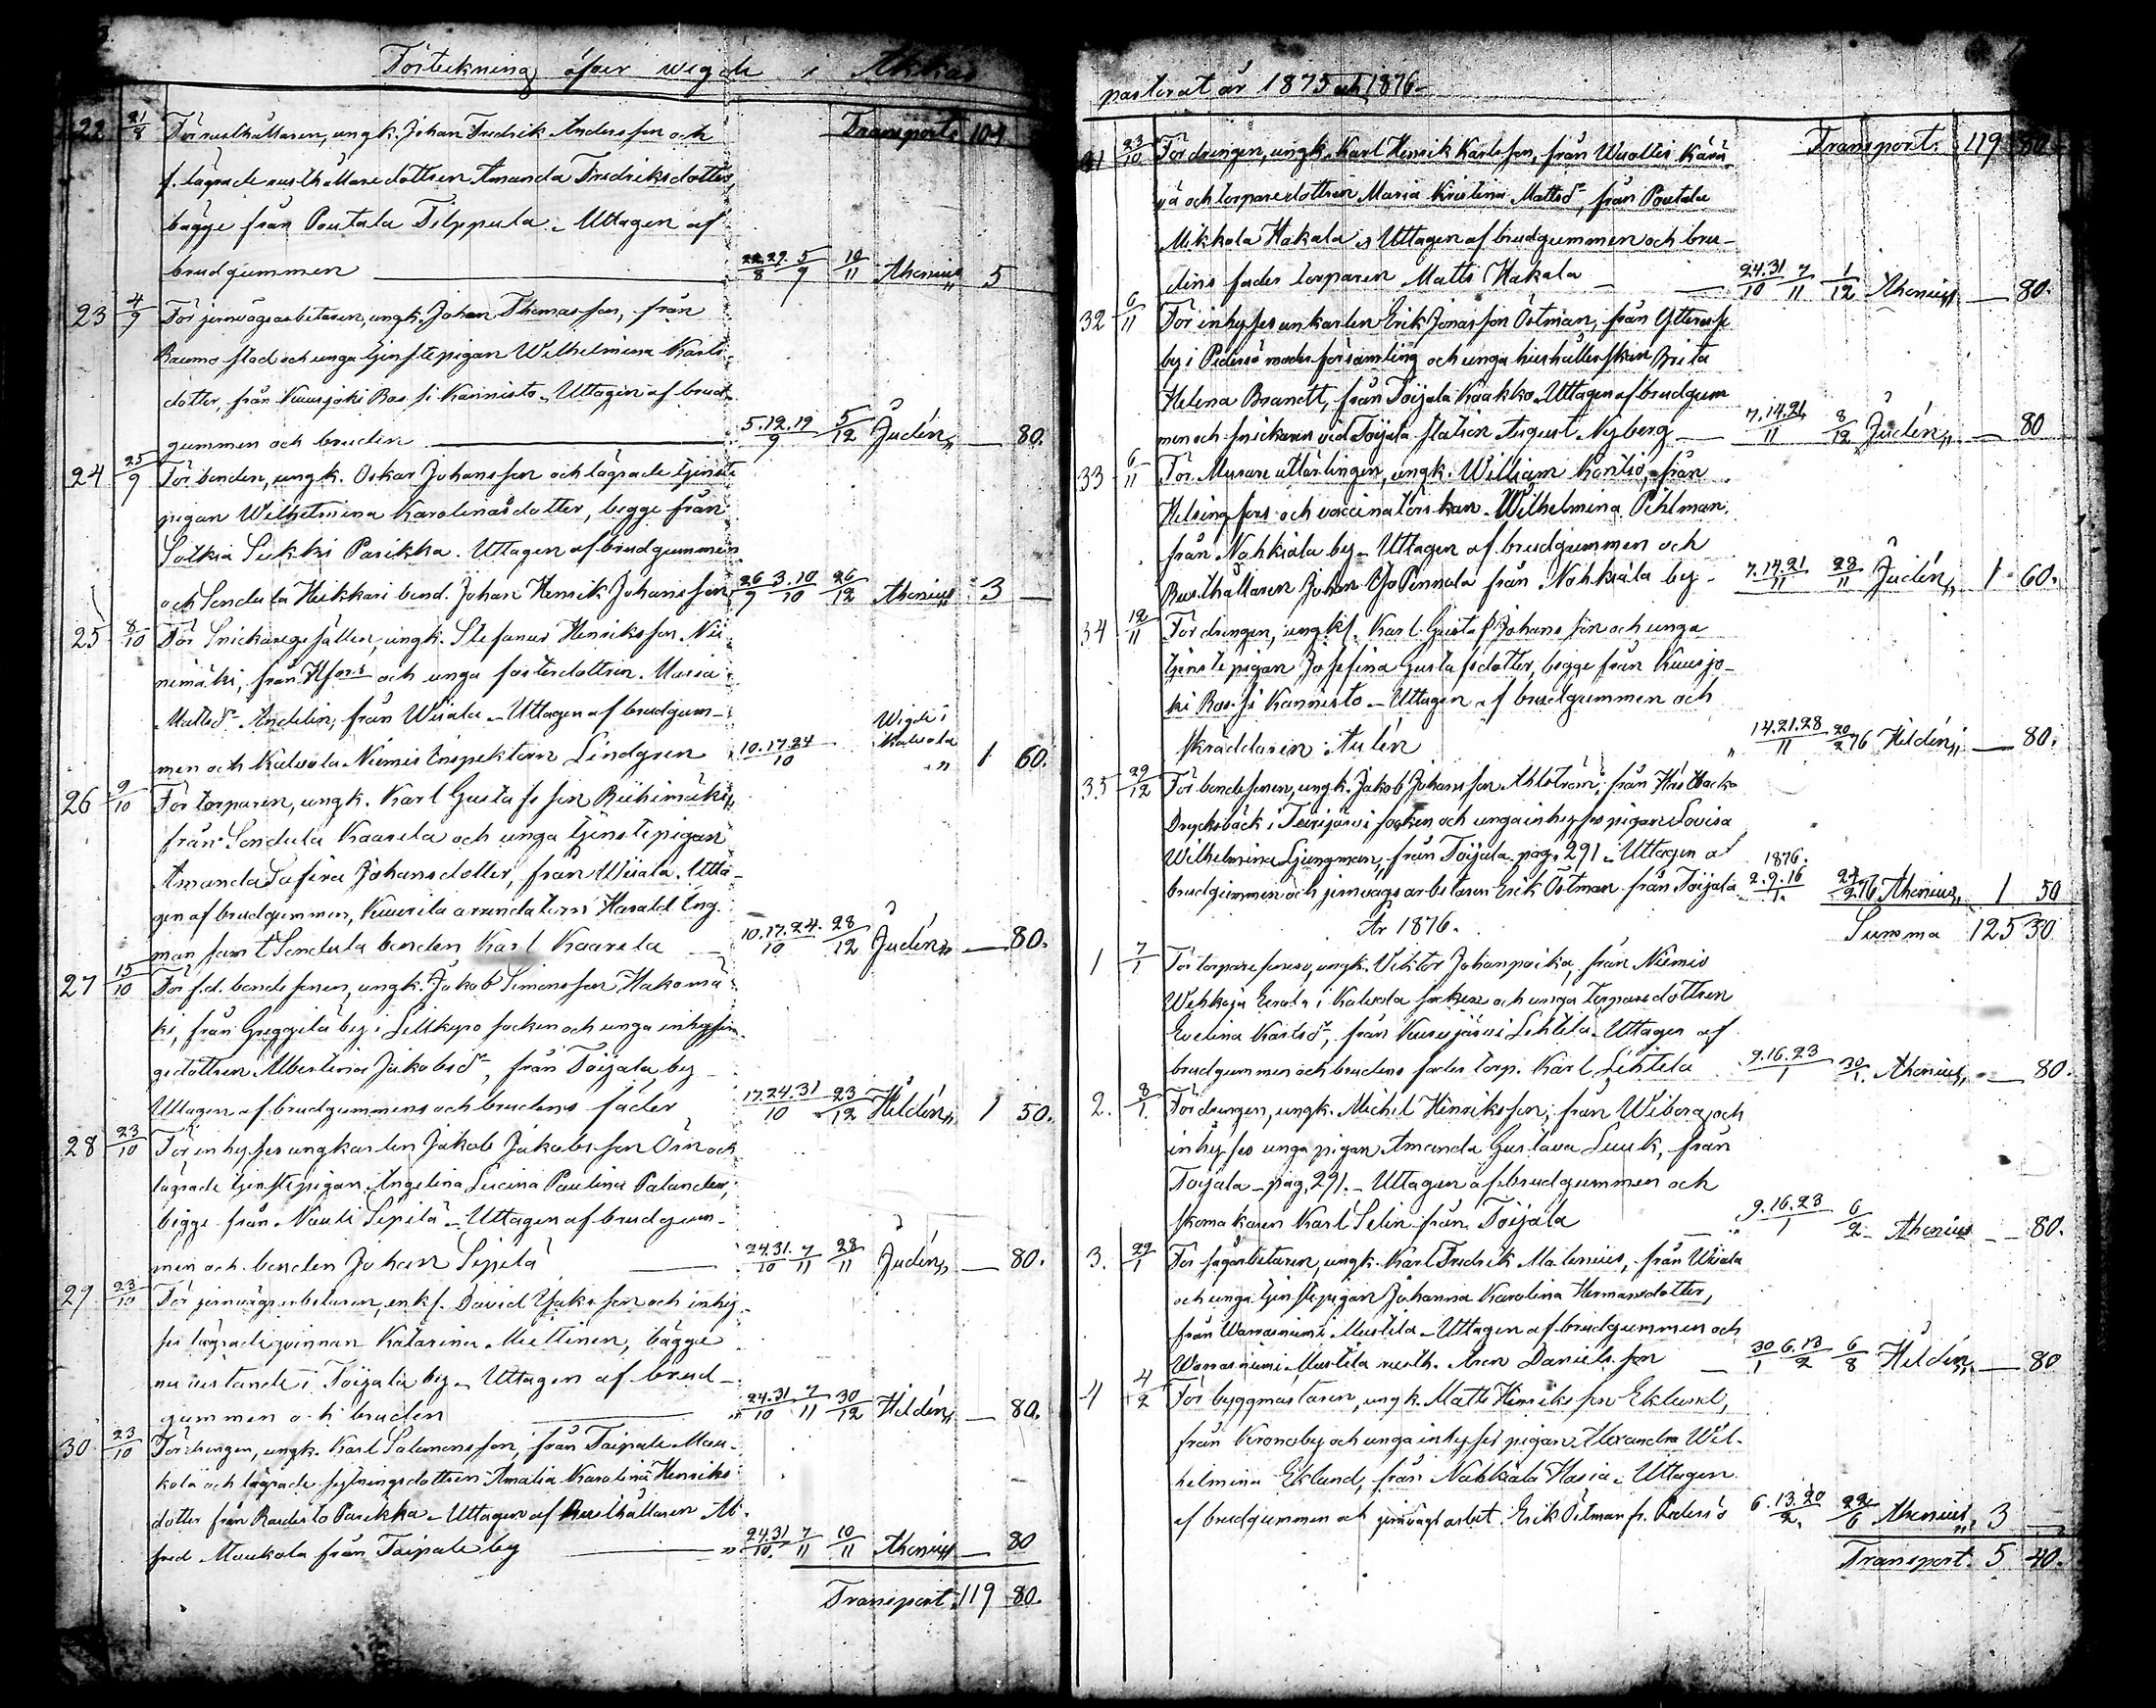 Förteckning öfver wigde i Akkas
22 21/8 För rusthållaren, ungk. Johan Fredrik Andersson och Transport. 104
f. lägrade rusthållaredottren Amanda Fredriksdotter,
bägge från Poutala Filppula. Uttagen af
brudgummen 22.29./8 5/9 10/11 Athenius 5
23 4/9 För jernvägsarbetaren, ungk. Johan Thomasson, från
Raumo stad och unga tjenstepigan Wilhelmina Karls-
dotter, från Kuurjoki Ros si Kannisto. Uttagen af brud-
gummen och bruden 5.12.19/9 5/12 Judén 80.
24 25/9 För bonden, ungk. Oskar Johansson och lägrade tjenste
pigan Wilhelmina Karolinasdotter, begge från
Sotkia Sukki Parikka. Uttagen af brudgummen
och Sondula Heikkari bond. Johan Henrik Johansson 26/9 3.10/10 26/12 Athenius 3
25 8/10 För Snickaregesällen, ungk. Stefanus Henriksson Nii-
nimäki, från Hfors och unga fosterdottren Maria
Mattsdr Andelin, från Wiiala. Uttagen af brudgum- Wigde i
men och Kalvola Niemis Inspektorn Lindgren 10.17.24/10 Kalvola 1 60.
26 9/10 För torparen, ungk. Karl Gustafsson Riihimäki,
från Sondula Kaarela och unga tjenstepigan
Amanda Safira Johansdotter, från Wiiala. Utta-
gen af brudgummen, Kuurila arrendatorn Harald Eng-
man samt Sondula bonden Karl Kaarela 10.17.24./10 28/12 Judén 80.
27 15/10 För f.d. bondesonen, ungk. Jakob Simonsson Hakomä
ki, från Greggilä by i Lillkyro socken och unga inhysin
gedottren Albertina Jakobsdr, från Toijala by
Uttagen af brudgummens och brudens fader 17.24.31/10 23/12 Hildén 1 50.
28 23/10 För inhyses ungkarlen Jakob Jakobsson Örn och
lägrade tjenstepigan Angelina Lucina Paulina Palander,
bägge från Nauli Sipilä. Uttagen af brudgum-
men och bonden Johan Sipilä 24.31./10 7/11 28/11 Judén 80.
29 23/10 För jernvägsarbetaren, enkl. David Isaksson och inhy-
ses lägrade qvinnan Katarina Miettinen, bägge
nu vistande i Toijala by. Uttagen af brud-
gummen och bruden 24.31/10 7/11 30/12 Hildén 80.
30 23/10 För drengen, ungk. Karl Salomonsson, från Taipale Mau-
kola och lägrade sytningsdottren Amalia Karolina Henriks
dotter från Pardesto Parikka. Uttagen af Rusthållaren Al-
fred Maukola från Taipale by 24.31/10. 7/11 10/11 Athenius 80
Transport. 119 80.
pastorat år 1875 och 1876.
31 23/10 För drengen, ungk. Karl Henrik Karlsson, från Wuoltis Kärä Transport. 119 80.
vä och torparedottren Maria Kristina Mattsdr, från Poutala
Mikkola Hakala. Uttagen af brudgummen och bru-
dens fader torparen Matts Hakala 24.31/10 7/11 1/12 Athenius 80.
32 6/11 För inhyses unkarlen Erik Jonasson Östman, från Ytteresse
by i Pedersö modersförsamling och unga hushållerskan Brita
Helena Brandt, från Toijala Kaakko. Uttagen af brudgum
men och snickaren vid Toijala station August Nyberg 7.14.21/11 8/12 Judén 80
33 6/11 För Murare utlärlingen, ungk. William Konlio, från
Helsingfors och vaccinatörskan Wilhelmina Pihlman,
från Nahkiala by. Uttagen af brudgummen och
Rusthållaren Johan Yl Pennola från Nahkiala by. 7.14.21/11 28/11 Judén 1 60.
34 12/11 För drengen, ungkl. Karl Gustaf Johansson och unga
tjenstepigan Josefina Gustafsdotter, bägge från Kuurjo-
ki Ros si Kannisto. Uttagen af brudgummen och
skräddaren Aulén 14.21.28/11 20/2 76 Hildén 80.
35 29/12 För bondesonen, ungk. Jakob Johansson Ahlström, från
Drycksbäck i Teerijärvi socken och unga inhyses pigan Lovisa
Wilhelmina Ljungman, från Toijala pag. 291. Uttagen af 1876.
brudgummen och jernvägsarbetaren Erik Östman från Toijala 2.9.16/1. 27/2 76 Athenius 1 50
År 1876. Summa 125 30
1 7/1 För torparesonen, ungk. Viktor Johanpoika, från Niemis
Wehkoja Eerola i Kalvola socken och unga torparedottren
Evelina Karlsdr, från Kuurijärvi Lehtelä. Uttagen af
brudgummen och brudens fader torp. Karl Lehtelä 9.16.23/1 30/1. Athenius 80.
2. 8/1. För drengen, ungk. Michel Henriksson, från Wiborg och
inhyses unga pigan Amanda Gustava Luuk, från
Toijala - pag. 291. - Uttagen af brudgummen och
skomakaren Karl Selin från Toijala 9.16.23/1 6/2. Athenius 80.
3. 29/1 För sågarbetaren, ungk. Karl Fredrik Malenius, från Wiiala
och unga tjenstepigan Johanna Karolina Hermansdotter,
från Warrasniemi Mustila. Uttagen af brudgummen och
Warrasniemi Mustila rusth. Aron Danielsson 30/1 6.13/2 6/8 Hildén 80
4 4/2 För byggmästaren, ungk. Matts Henriksson Eklund,
från Kronoby och unga inhyses pigan Alexandra Wil-
helmina Eklund, från Nahkiala Hasia. Uttagen
af brudgummen och jernvägsarbet. Erik Östman fr. Pedersö 6.13.20/2. 22/6 Athenius 3
Transport. 5 40.